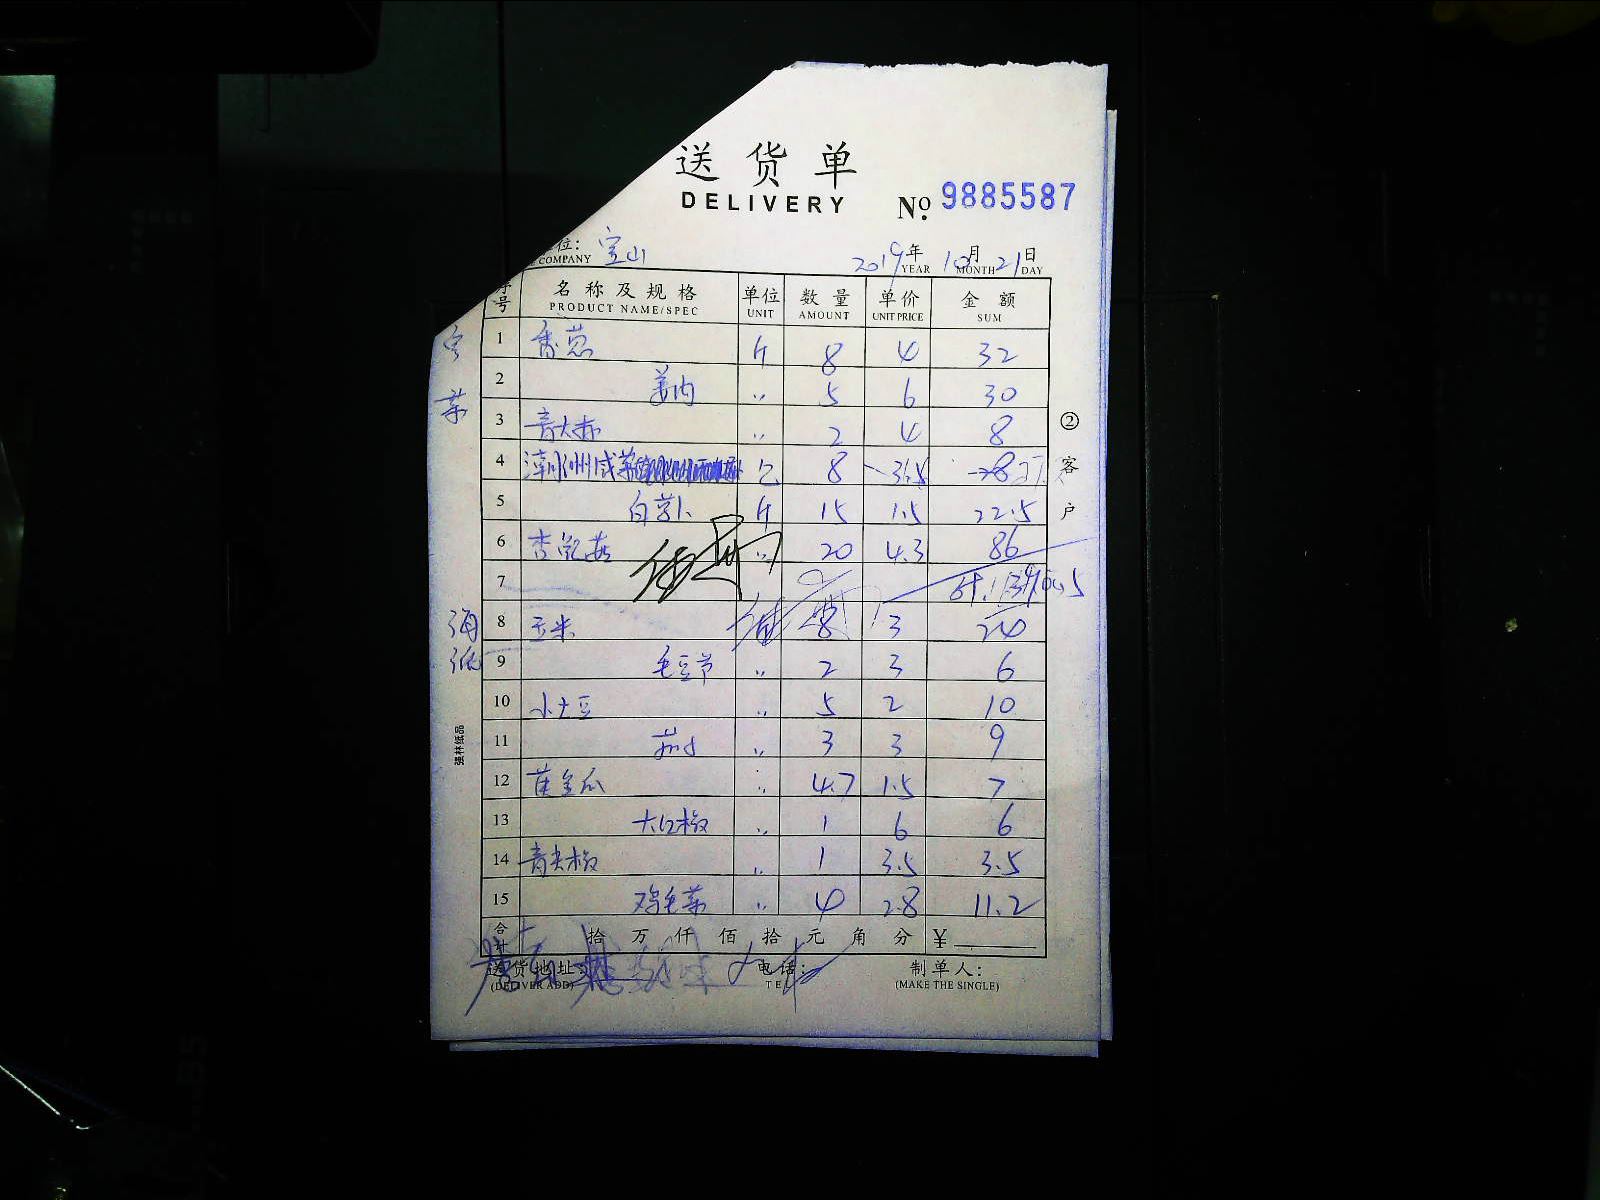 送货单
DELIVERY
No. 9885587
位: 宝山 2019年 10月 21日
COMPANY YEAR MONTH DAY
序号 名称及规格 单位 数量 单价 金额
PRODUCT NAME/SPEC UNIT AMOUNT UNIT PRICE SUM
1 香葱 斤 8 4 32
2 姜肉 〃 5 6 30
3 青大椒 〃 2 4 8
4 潮州咸菜 8
5 白萝卜 斤 15 1.5 22.5
6 杏鲍菇 〃 20 4.3 86
7
8 玉米 8 3 24
9 毛豆节 〃 2 3 6
10 小土豆 〃 5 2 10
11 〃 3 3 9
12 黄金瓜 〃 4.7 1.5 7
13 大红椒 〃 1 6 6
14 青尖椒 〃 1 3.5 3.5
15 鸡毛菜 〃 4 2.8 11.2
合计 拾 万 仟 佰 拾 元 角 分 ¥
送货地址: 电话: 制单人:
(DELIVER ADD) TEL (MAKE THE SINGLE)
②客户
强林纸品